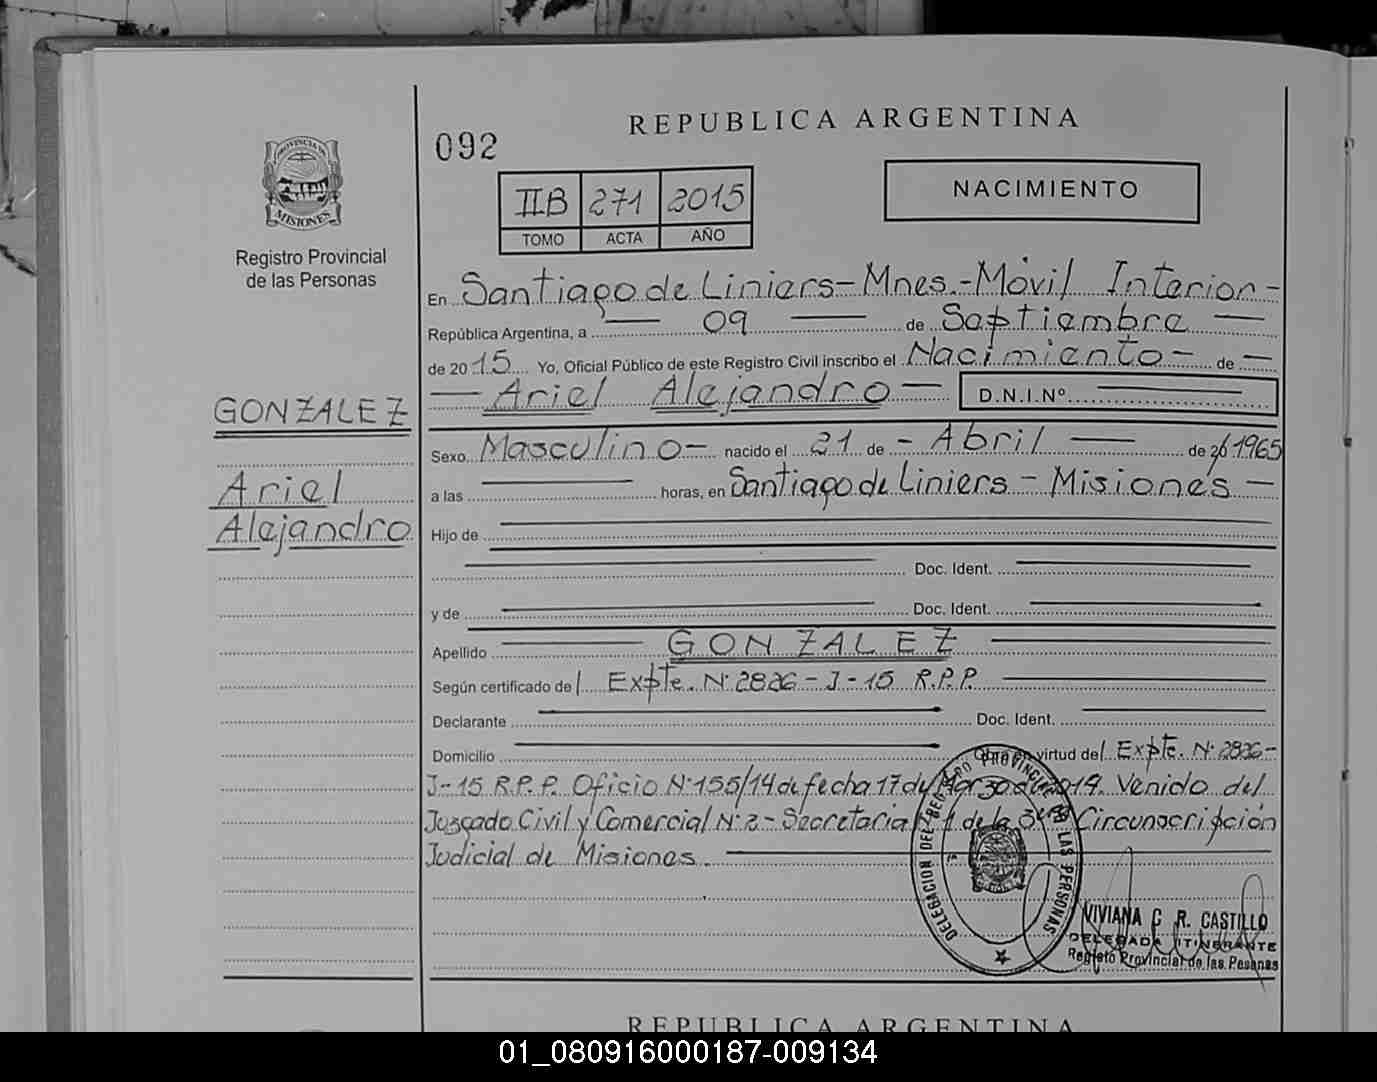 REPUBLICA ARGENTINA
092
NACIMIENTO
IIB 271 2015
TOMO ACTA AÑO
PROVINCIA DE
MISIONES
Registro Provincial
de las Personas
GONZALEZ
Ariel
Alejandro
En Santiago de Liniers - Mnes. - Móvil Interior -
República Argentina, a — 09 — de Septiembre —
de 2015 Yo, Oficial Público de este Registro Civil inscribo el Nacimiento - de —
— Ariel Alejandro — D.N.I.Nº —
Sexo Masculino - nacido el 21 de - Abril — de 1965
a las — horas, en Santiago de Liniers - Misiones —
Hijo de —
— Doc. Ident. —
y de — Doc. Ident. —
Apellido — GONZALEZ —
Según certificado de/ Expte. Nº 2826 - J - 15 R.P.P. —
Declarante — Doc. Ident. —
Domicilio — Obra en virtud del Expte. Nº 2826 -
J - 15 R.P.P. Oficio Nº 155/14 de fecha 17 de Marzo de 2014. Venido del
Juzgado Civil y Comercial Nº 2 - Secretaria Nº 1 de la 3era Circunscripción
Judicial de Misiones. —
DELEGACION DEL REGISTRO PROVINCIAL DE LAS PERSONAS
VIVIANA C R. CASTILLO
DELEGADA ITINERANTE
Registo Provincial de las Pesonas
REPUBLICA ARGENTINA
01_080916000187-009134